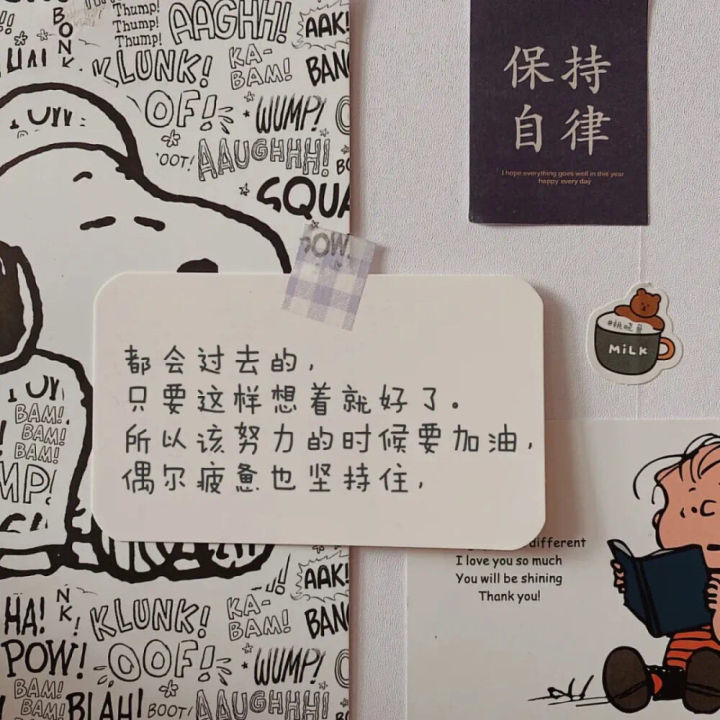 BONK
Thump!
Thump!
Thump!
AAGHH!
AAK!
HA!
KLUNK!
KA-
BAM!
OOF!
WUMP!
'OOT!
AAUGHHH!
POW!
保持
自律
I hope everything goes well in this year
happy every day
MiLK
都会过去的,
只要这样想着就好了。
所以该努力的时候要加油,
偶尔疲惫也坚持住,
BAM!
BAM!
BAM!
different
I love you so much
You will be shining
Thank you!
HA!
KLUNK!
KA-
BAM!
AAK!
POW!
OOF!
WUMP!
BAM!
BAM!
BLAH!
BOOT!
AAUGHHH!